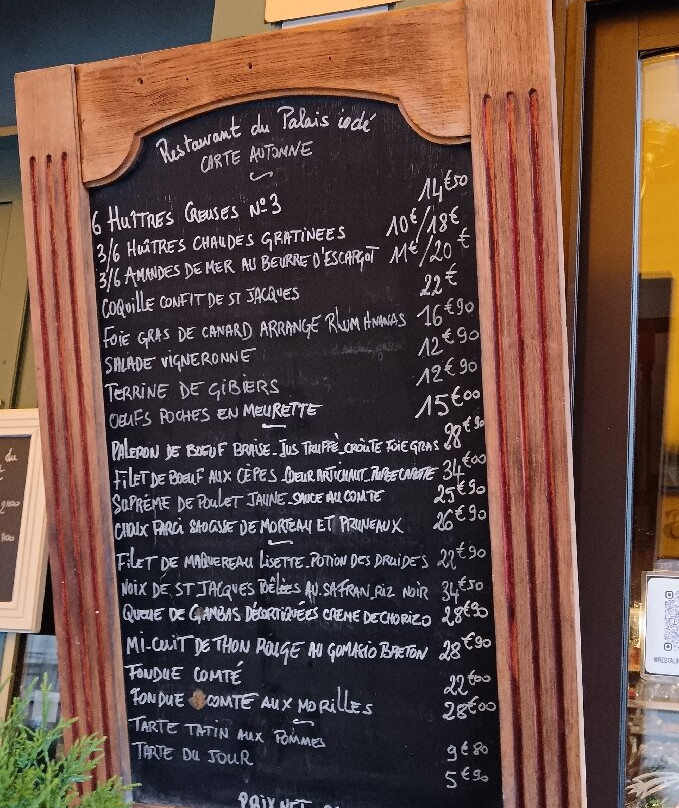 Restaurant du Palais iodé
CARTE AUTOMNE
6 HUÎTRES CREUSES N°3 14€50
3/6 HUÎTRES CHAUDES GRATINEES 10€/18€
3/6 AMANDES DE MER AU BEURRE D'ESCARGOT 11€/20€
COQUILLE CONFIT DE ST JACQUES 22€
FOIE GRAS DE CANARD ARRANGE RHUM ANANAS 16€90
SALADE VIGNERONNE 12€90
TERRINE DE GIBIERS 12€90
OEUFS POCHES EN MEURETTE 15€00
PALERON DE BOEUF BRAISE_JUS TRUFFÉ_CROÛTE FOIE GRAS 28€90
FILET DE BOEUF AUX CÈPES_COEUR ARTICHAUT_PUREE CAROTTE 34€00
SUPRÊME DE POULET JAUNE_SAUCE AU COMTE 25€90
CHOUX FARCI SAUCISSE DE MORTEAU ET PRUNEAUX 26€90
FILET DE MAQUEREAU LISETTE_POTION DES DRUIDES 22€90
NOIX DE ST JACQUES POÊLÉES AU SAFRAN_RIZ NOIR 34€50
QUEUE DE GAMBAS DÉCORTIQUÉES CREME DE CHORIZO 28€90
MI-CUIT DE THON ROUGE AU GOMASIO BRETON 28€90
FONDUE COMTÉ 22€00
FONDUE COMTE AUX MORILLES 28€00
TARTE TATIN AUX POMMES 9€80
TARTE DU JOUR 5€90
PRIX NET
du
@RESTAU